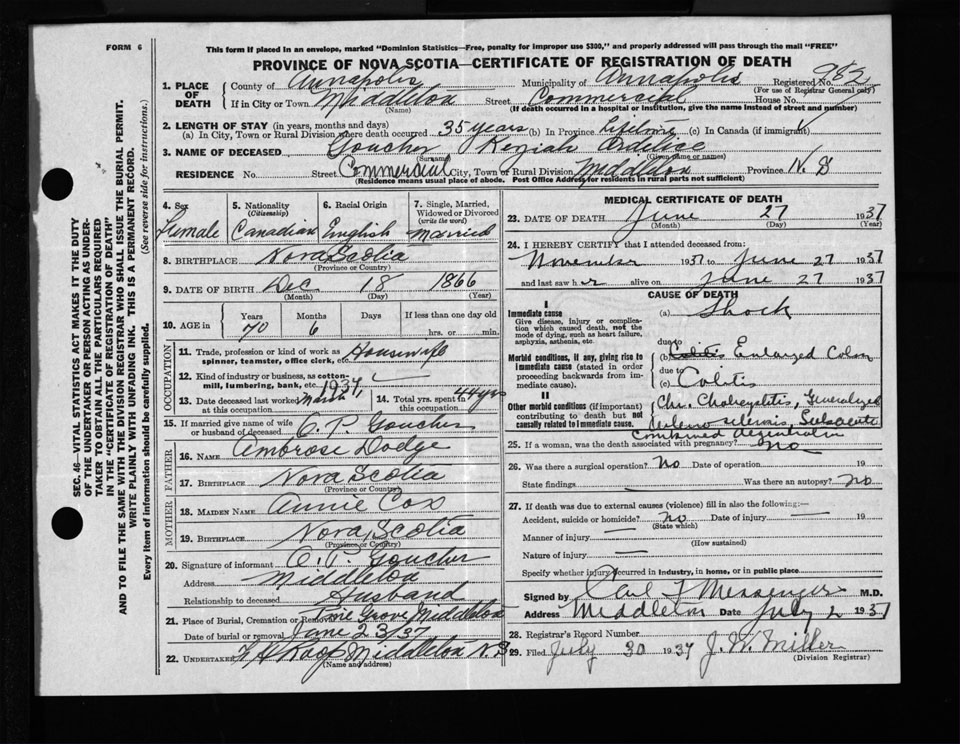 FORM 6
This form if placed in an envelope, marked "Dominion Statistics—Free, penalty for improper use $300," and properly addressed will pass through the mail "FREE"
PROVINCE OF NOVA SCOTIA—CERTIFICATE OF REGISTRATION OF DEATH
1. PLACE OF DEATH County of Annapolis Municipality of Annapolis Registered No. 982
(For use of Registrar General only)
If in City or Town Middleton Street Commercial House No.
(Name) (If death occurred in a hospital or institution, give the name instead of street and number)
2. LENGTH OF STAY (in years, months and days)
(a) In City, Town or Rural Division where death occurred 35 years (b) In Province Lifetime (c) In Canada (if immigrant)
3. NAME OF DECEASED Goucher Keziah
(Surname) (Given name or names)
RESIDENCE No. Street Commercial City, Town or Rural Division Middleton Province N. S
(Residence means usual place of abode. Post Office Address for residents in rural parts not sufficient)
4. Sex Female
5. Nationality (Citizenship) Canadian
6. Racial Origin English
7. Single, Married, Widowed or Divorced (write the word) Married
8. BIRTHPLACE Nova Scotia
(Province or Country)
9. DATE OF BIRTH Dec 18 1866
(Month) (Day) (Year)
10. AGE in Years Months Days If less than one day old
70 6 hrs. or min.
OCCUPATION
11. Trade, profession or kind of work as spinner, teamster, office clerk, etc. Housewife
12. Kind of industry or business, as cotton-mill, lumbering, bank, etc.
13. Date deceased last worked at this occupation March 1937
14. Total yrs. spent in this occupation 44 yrs
15. If married give name of wife or husband of deceased O. P. Goucher
FATHER
16. NAME Ambrose Dodge
17. BIRTHPLACE Nova Scotia
(Province or Country)
MOTHER
18. MAIDEN NAME Annie Cox
19. BIRTHPLACE Nova Scotia
(Province or Country)
20. Signature of informant O. P. Goucher
Address Middleton
Relationship to deceased Husband
21. Place of Burial, Cremation or Removal Pine Grove Middleton
Date of burial or removal June 23/37
22. UNDERTAKER Middleton N. S
(Name and address)
MEDICAL CERTIFICATE OF DEATH
23. DATE OF DEATH June 27 1937
(Month) (Day) (Year)
24. I HEREBY CERTIFY that I attended deceased from:
November 1937 to June 27 1937
and last saw her alive on June 27 1937
CAUSE OF DEATH
I
Immediate cause
Give disease, injury or complication which caused death, not the mode of dying, such as heart failure, asphyxia, asthenia, etc.
(a) Shock
due to
Morbid conditions, if any, giving rise to immediate cause (stated in order proceeding backwards from immediate cause).
(b) Colitis Enlarged Colon
due to
(c) Colitis
II
Other morbid conditions (if important) contributing to death but not causally related to immediate cause.
Generalized
Subacute
Combined degeneration
25. If a woman, was the death associated with pregnancy? no
26. Was there a surgical operation? No Date of operation 19
State findings Was there an autopsy? no
27. If death was due to external causes (violence) fill in also the following:
Accident, suicide or homicide? no Date of injury 19
(State which)
Manner of injury
(How sustained)
Nature of injury
Specify whether injury occurred in industry, in home, or in public place
Signed by Messenger M.D.
Address Middleton Date July 2 1937
28. Registrar's Record Number
29. Filed July 30 1937 J. W. Miller
(Division Registrar)
SEC. 46—VITAL STATISTICS ACT MAKES IT THE DUTY
OF THE UNDERTAKER OR PERSON ACTING AS UNDER-
TAKER TO OBTAIN ALL THE PARTICULARS REQUIRED
IN THE "CERTIFICATE OF REGISTRATION OF DEATH"
AND TO FILE THE SAME WITH THE DIVISION REGISTRAR WHO SHALL ISSUE THE BURIAL PERMIT.
WRITE PLAINLY WITH UNFADING INK. THIS IS A PERMANENT RECORD.
Every item of information should be carefully supplied. (See reverse side for instructions.)